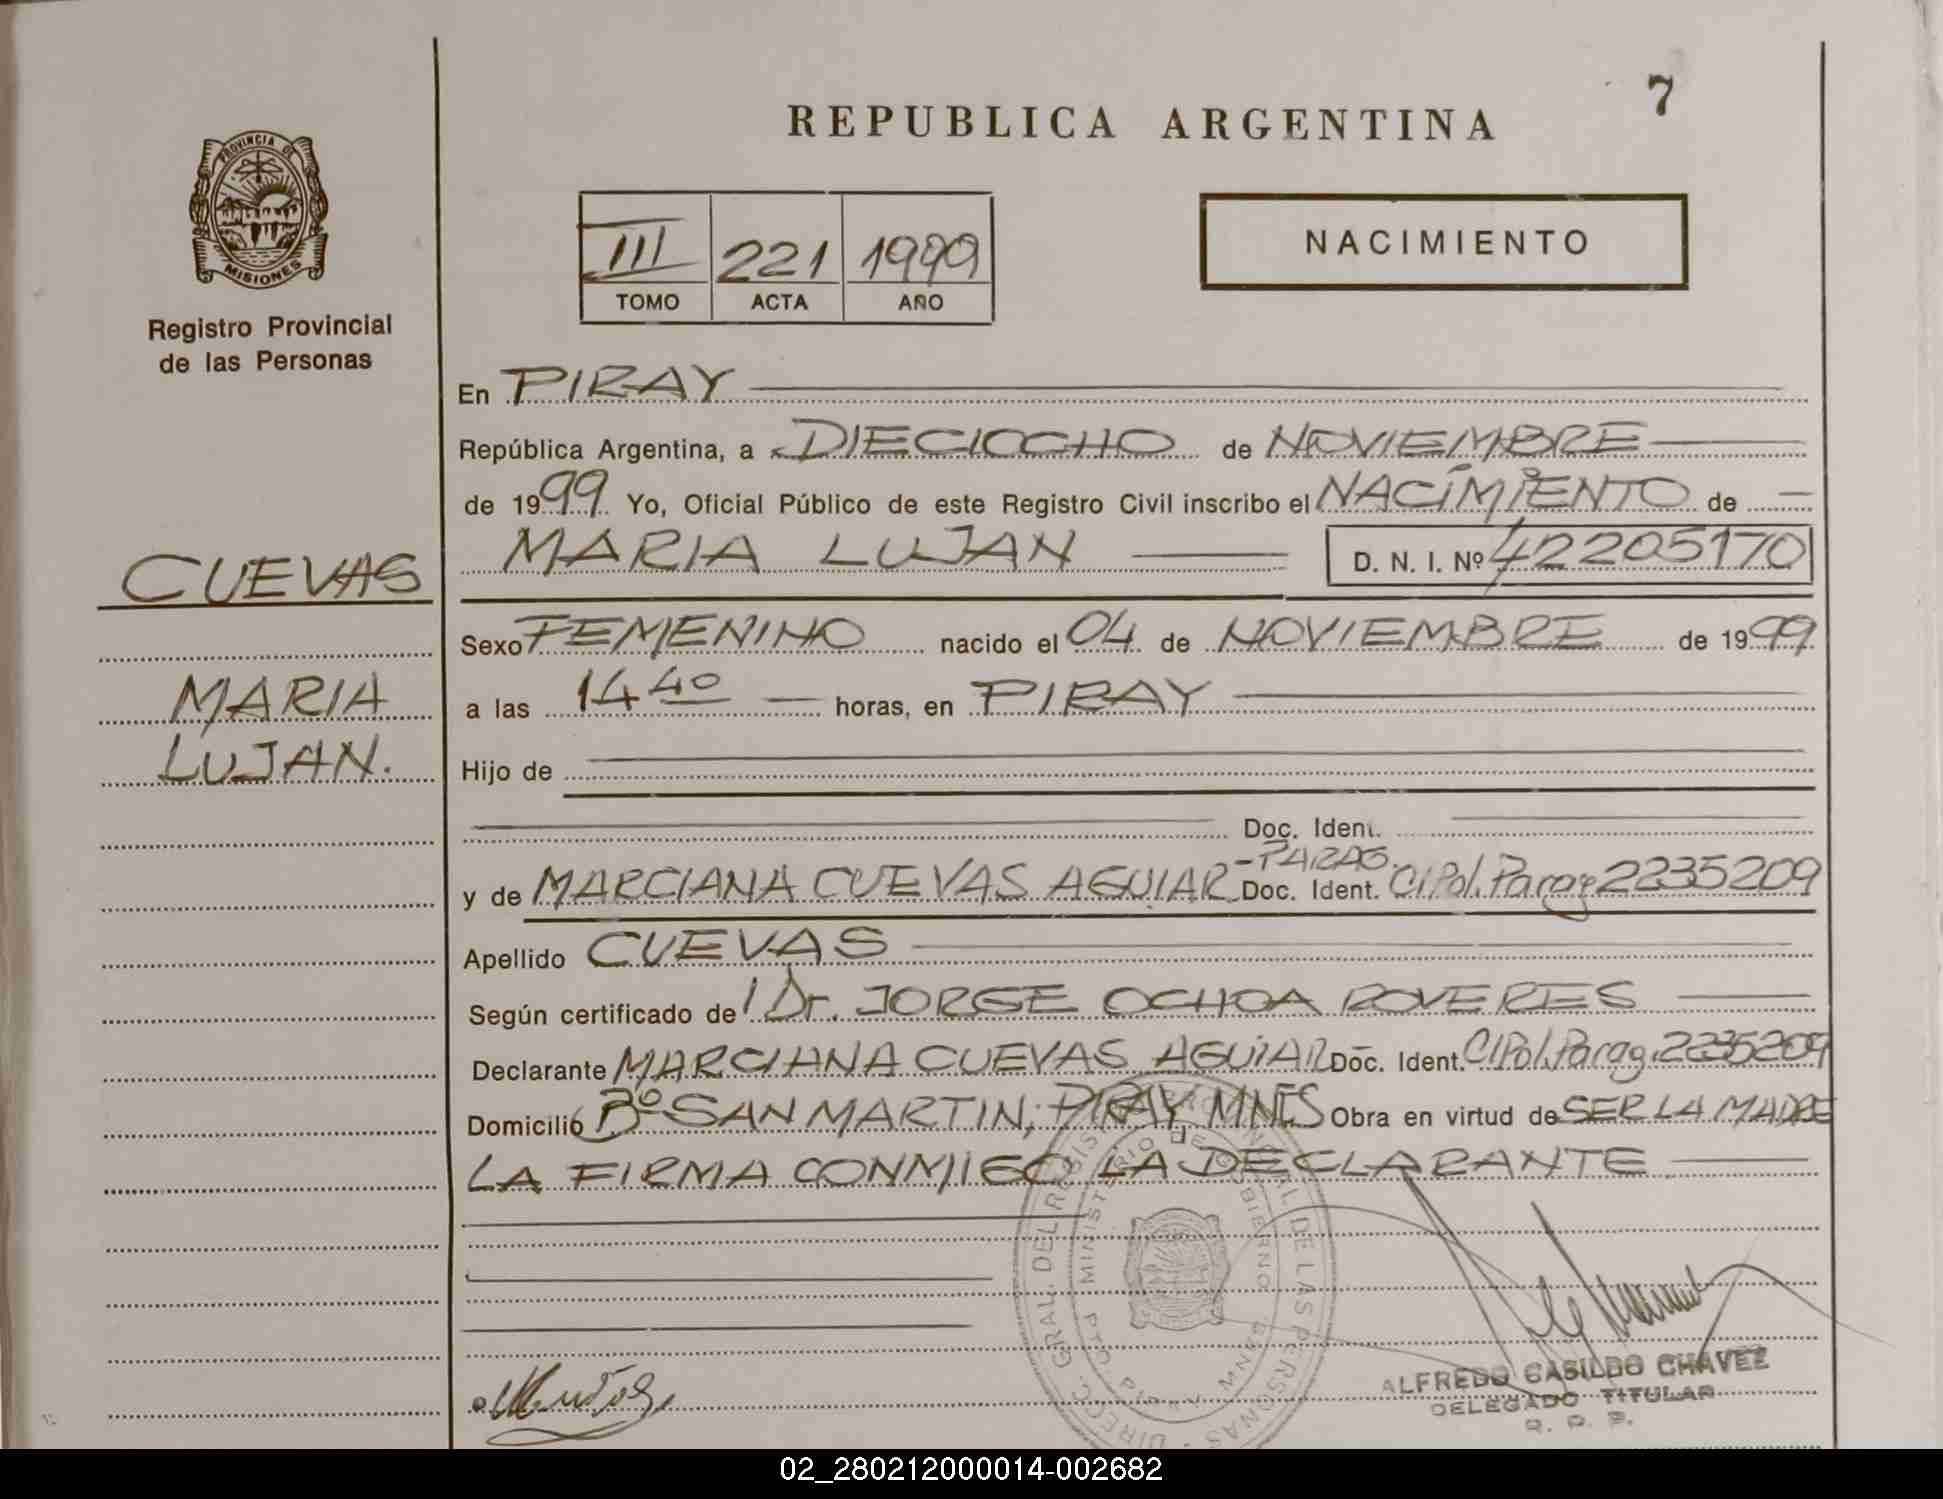 7
REPUBLICA ARGENTINA
PROVINCIA DE
MISIONES
Registro Provincial
de las Personas
III 221 1999
TOMO ACTA AÑO
NACIMIENTO
CUEVAS
MARIA
LUJAN.
En PIRAY
República Argentina, a DIECIOCHO de NOVIEMBRE
de 1999 Yo, Oficial Público de este Registro Civil inscribo el NACIMIENTO de
MARIA LUJAN D. N. I. Nº 42205170
Sexo FEMENINO nacido el 04 de NOVIEMBRE de 1999
a las 14 40 horas, en PIRAY
Hijo de
Doc. Ident.
y de MARCIANA CUEVAS AGUIAR -PARAG. Doc. Ident. CIPol. Parag 2235209
Apellido CUEVAS
Según certificado de l Dr. JORGE OCHOA ROVERES
Declarante MARCIANA CUEVAS AGUIAR Doc. Ident. CIPol. Parag. 2235209
Domicilió Bº SAN MARTIN, PIRAY MNES Obra en virtud de SER LA MADRE
LA FIRMA CONMIGO LA DECLARANTE
DIREC. GRAL. DEL REGIS PROVINCIAL DE LAS PERSONAS
MINISTERIO DE GOBIERNO
PIRAY MNES
ALFREDO CASILDO CHAVEZ
DELEGADO TITULAR
R. P. P.
02_280212000014-002682